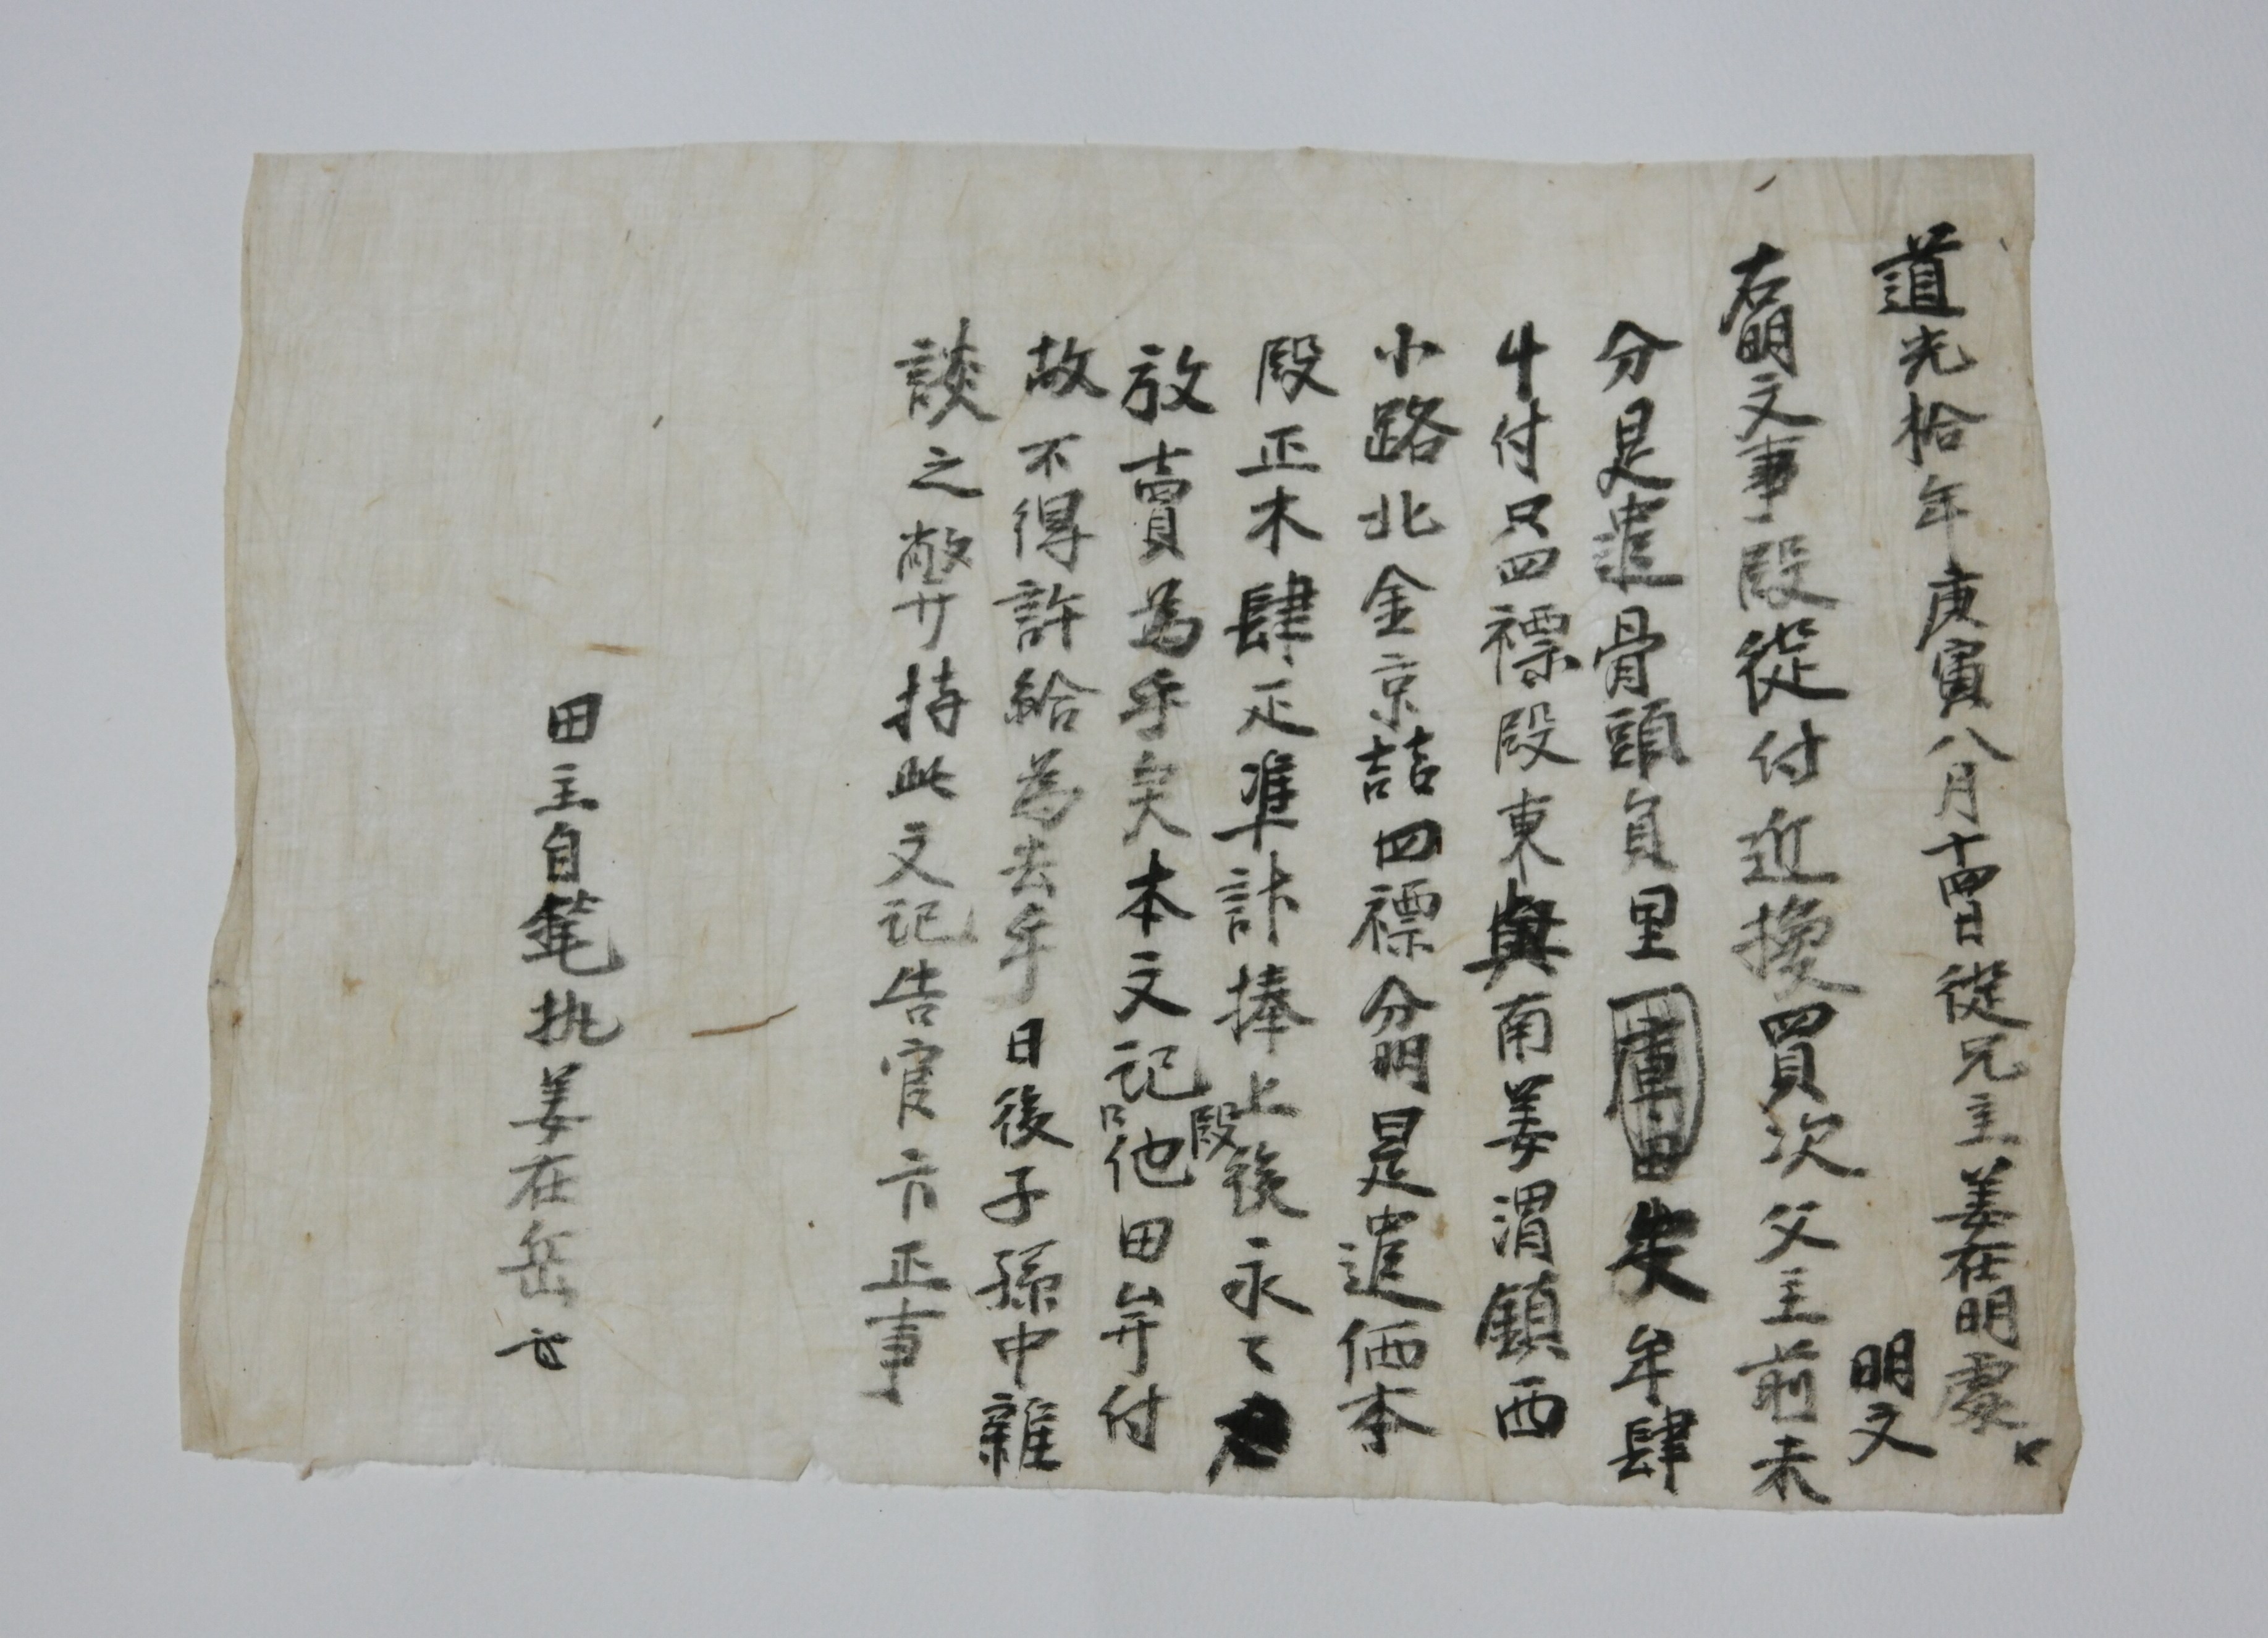 道光拾年庚寅八月十四日從兄主姜在明處
明文
右明文事段從付近換買次父主前未
分是遣骨頭員里庫田牟肆
斗付只四標段東與南姜渭鎮西
小路北金京喆四標分明是遣価本
段正木肆疋準計捧上後永々
放賣為乎矣本文記段他田幷付
故不得許給為去乎日後子孫中雜
談之弊廾持此文記告官卞正事
田主自筆執姜在岳